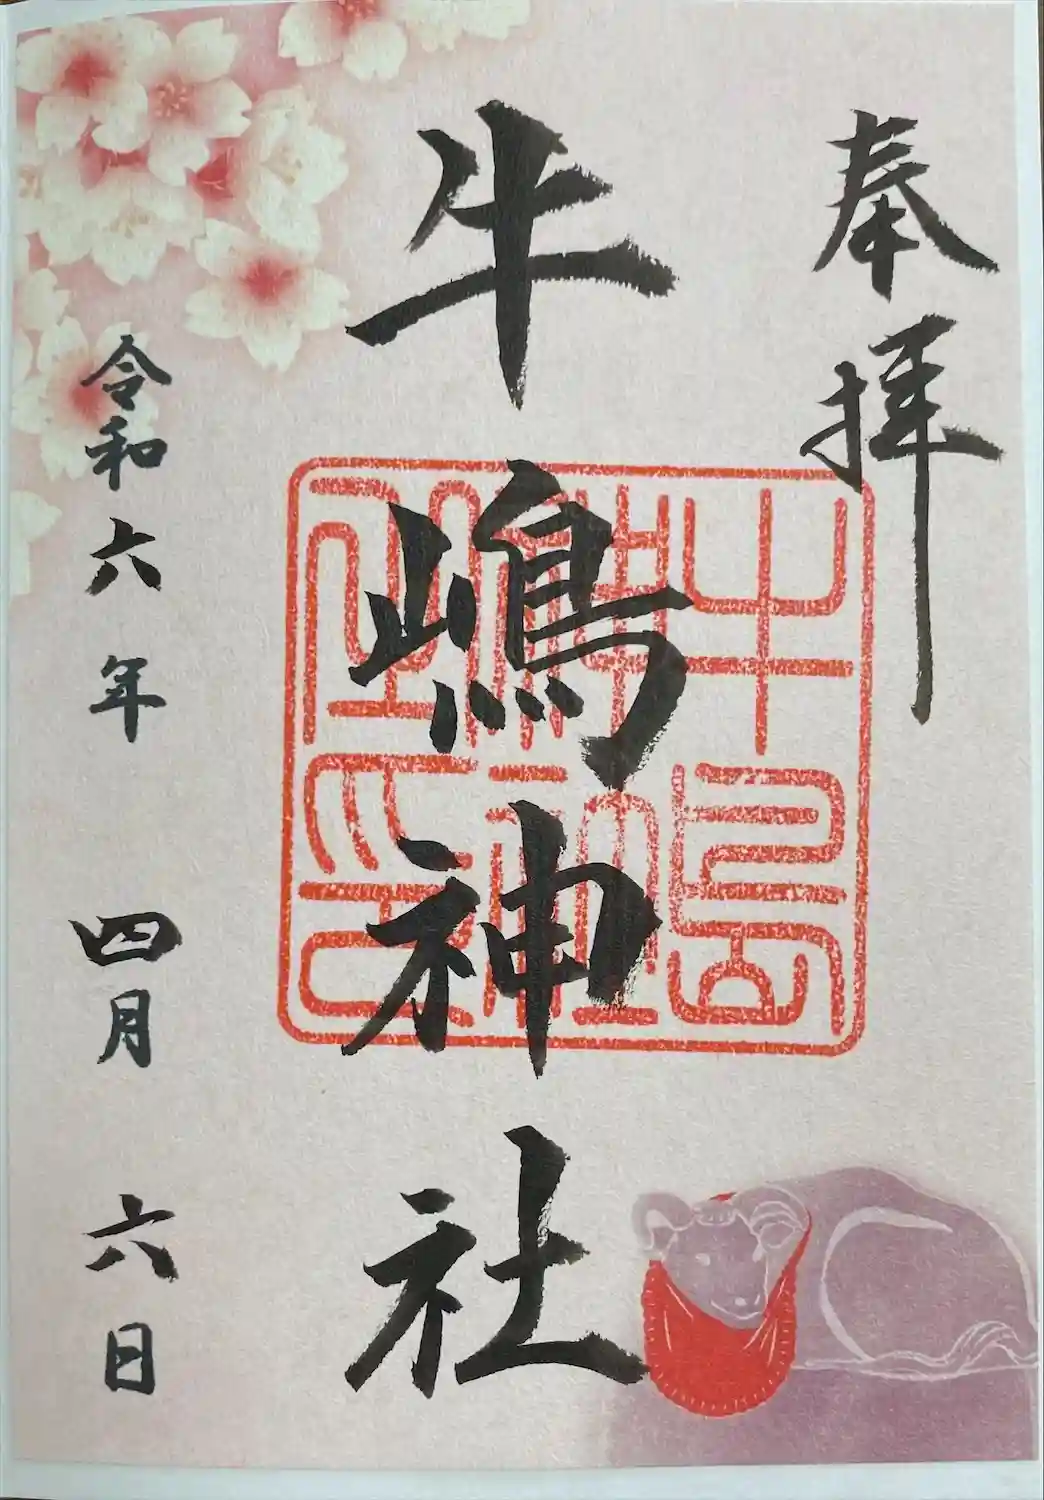 奉拝
牛嶋神社
牛嶋神社之印
令和六年 四月 六日